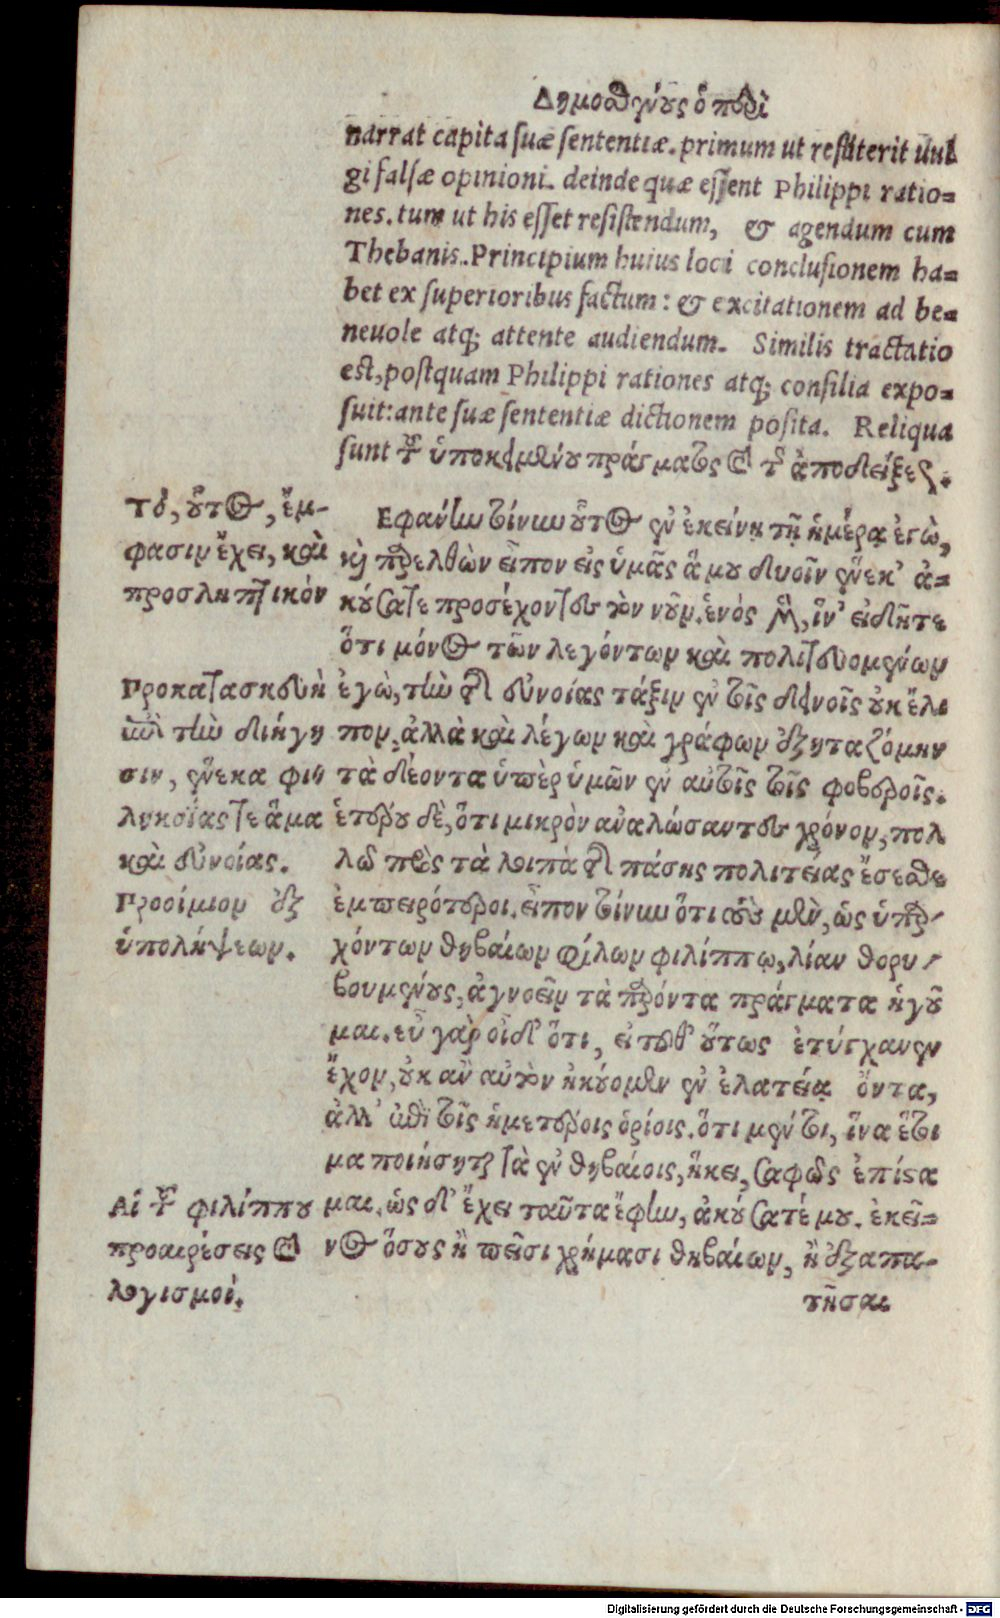 Δημοσθένους ὁ περὶ
narrat capita suæ sententiæ. primum ut restiterit uul
gi falsæ opinioni. deinde quæ essent Philippi ratio=
nes. tum ut his esset resistendum, & agendum cum
Thebanis. Principium huius loci conclusionem ha=
bet ex superioribus factum: & excitationem ad be=
neuole atq; attente audiendum. Similis tractatio
est, postquam Philippi rationes atq; consilia expo=
suit: ante suæ sententiæ dictionem posita. Reliqua
sunt τοῦ ὑποκειμένου πράγματος καὶ τῆς ἀποδείξεως.
τὸ, οὗτος, ἔμ-
φασιν ἔχει, καὶ
προσληπτικόν
Προκατασκευὴ
ἐπὶ τὴν διήγη
σιν, ἕνεκα φι
λονεικίας τε ἅμα
καὶ εὐνοίας.
Προοίμιον ἐξ
ὑπολήψεων.
Αἱ τοῦ φιλίππου
προαιρέσεις καὶ
λογισμοί.
Εφάνην τοίνυν οὗτος ἐν ἐκείνῃ τῇ ἡμέρᾳ ἐγὼ,
καὶ παρελθὼν εἶπον εἰς ὑμᾶς ἅ μου δυοῖν ἕνεκ' ἀ=
κούσατε προσέχοντες τὸν νοῦν. ἑνὸς μὲν, ἵν' εἰδῆτε
ὅτι μόνος τῶν λεγόντων καὶ πολιτευομένων
ἐγὼ, τὴν τῆς εὐνοίας τάξιν ἐν τοῖς δεινοῖς οὐκ ἔλι
πον, ἀλλὰ καὶ λέγων καὶ γράφων ἐξηταζόμην
τὰ δέοντα ὑπὲρ ὑμῶν ἐν αὐτοῖς τοῖς φοβεροῖς.
ἑτέρου δὲ, ὅτι μικρὸν ἀναλώσαντες χρόνον, πολ
λῷ πρὸς τὰ λοιπὰ τῆς πάσης πολιτείας ἔσεσθε
ἐμπειρότεροι. εἶπον τοίνυν ὅτι τοὺς μὲν, ὡς ὑπαρ-
χόντων θηβαίων φίλων φιλίππῳ, λίαν θορυ-
βουμένους, ἀγνοεῖν τὰ παρόντα πράγματα ἡγοῦ
μαι. εὖ γὰρ οἶδ' ὅτι, εἰ τοῦθ' οὕτως ἐτύγχανεν
ἔχον, οὐκ ἂν αὐτὸν ἠκούομεν ἐν ἐλατείᾳ ὄντα,
ἀλλ' ἐπὶ τοῖς ἡμετέροις ὁρίοις. ὅτι μέντοι, ἵνα ἕτοι
μα ποιήσηται τὰ ἐν θηβαίοις, ἥκει, σαφῶς ἐπίστα
μαι. ὡς δ' ἔχει ταῦτα ἔφην, ἀκούσατέ μου. ἐκεῖ=
νος ὅσους ἢ πεῖσαι χρήμασι θηβαίων, ἢ ἐξαπα-
τῆσαι
Digitalisierung gefördert durch die Deutsche Forschungsgemeinschaft - DFG